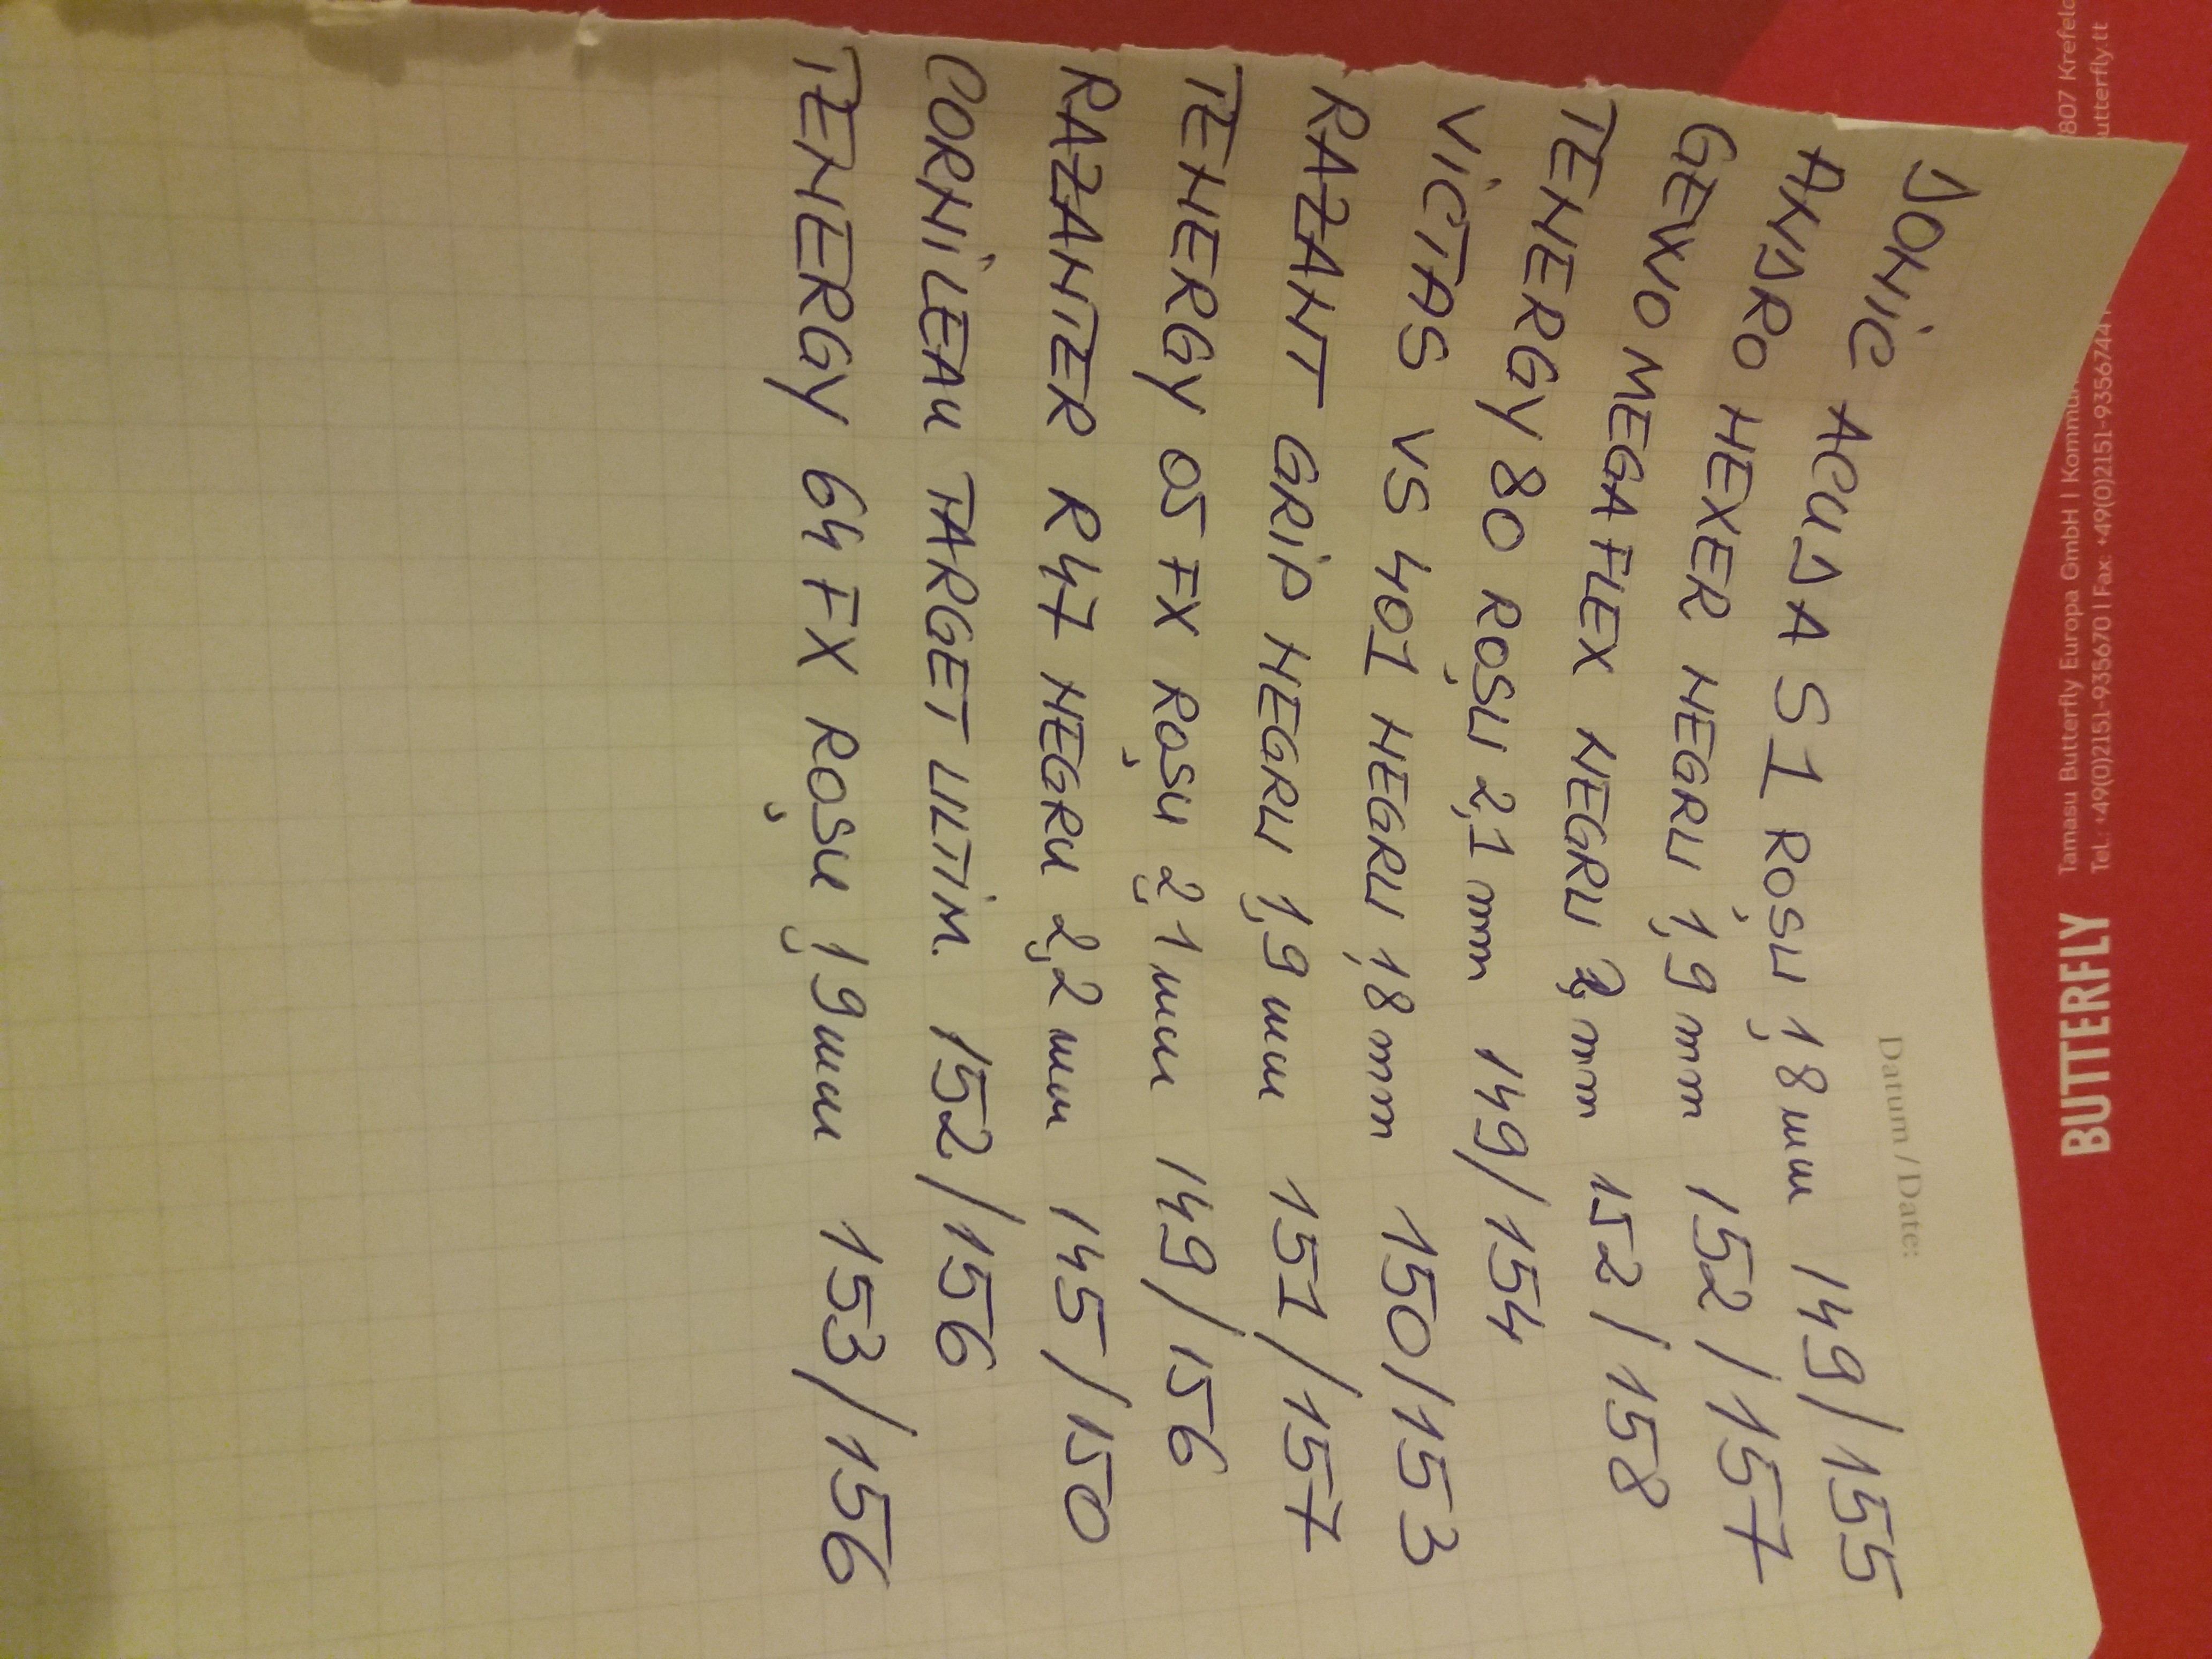 807 Krefeld
utterfly.tt
Tamasu Butterfly Europa GmbH | Kommun
Tel.: +49(0)2151-935670 | Fax: +49(0)2151-9356744
BUTTERFLY
Datum / Date:
DONIC ACUDA S1 ROȘU 1,8 mm 149/155
ANDRO HEXER NEGRU 1,9 mm 152/157
GEWO MEGA FLEX NEGRU 2 mm 152/158
TENERGY 80 ROȘU 2,1 mm 149/154
VICTAS VS 401 NEGRU 1,8 mm 150/153
RAZANT GRIP NEGRU 1,9 mm 151/157
TENERGY 05 FX ROȘU 2,1 mm 149/156
RAZANTER R47 NEGRU 2,2 mm 145/150
CORNILEAU TARGET ULTIM. 152/156
TENERGY 64 FX ROȘU 1,9 mm 153/156